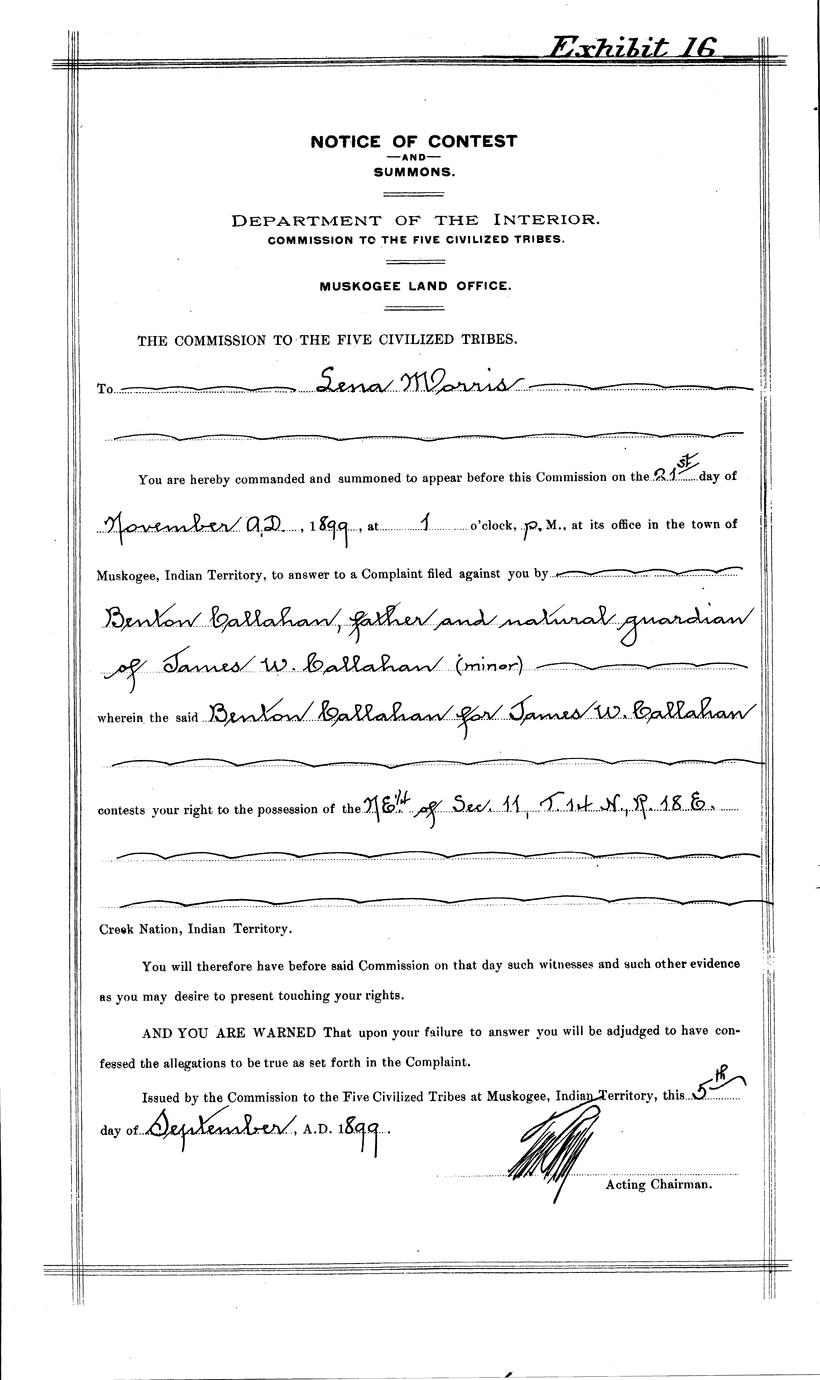 Exhibit 16
NOTICE OF CONTEST
—AND—
SUMMONS.
DEPARTMENT OF THE INTERIOR.
COMMISSION TO THE FIVE CIVILIZED TRIBES.
MUSKOGEE LAND OFFICE.
THE COMMISSION TO THE FIVE CIVILIZED TRIBES.
To Lena Morris
You are hereby commanded and summoned to appear before this Commission on the 21st day of
November A.D., 1899, at 1 o'clock, p. M., at its office in the town of
Muskogee, Indian Territory, to answer to a Complaint filed against you by
Benton Callahan, father and natural guardian
of James W. Callahan (minor)
wherein the said Benton Callahan for James W. Callahan
contests your right to the possession of the NE¼ of Sec. 11, T. 14 N., R. 18 E.
Creek Nation, Indian Territory.
You will therefore have before said Commission on that day such witnesses and such other evidence
as you may desire to present touching your rights.
AND YOU ARE WARNED That upon your failure to answer you will be adjudged to have con-
fessed the allegations to be true as set forth in the Complaint.
Issued by the Commission to the Five Civilized Tribes at Muskogee, Indian Territory, this 5th
day of September, A.D. 1899.
Acting Chairman.